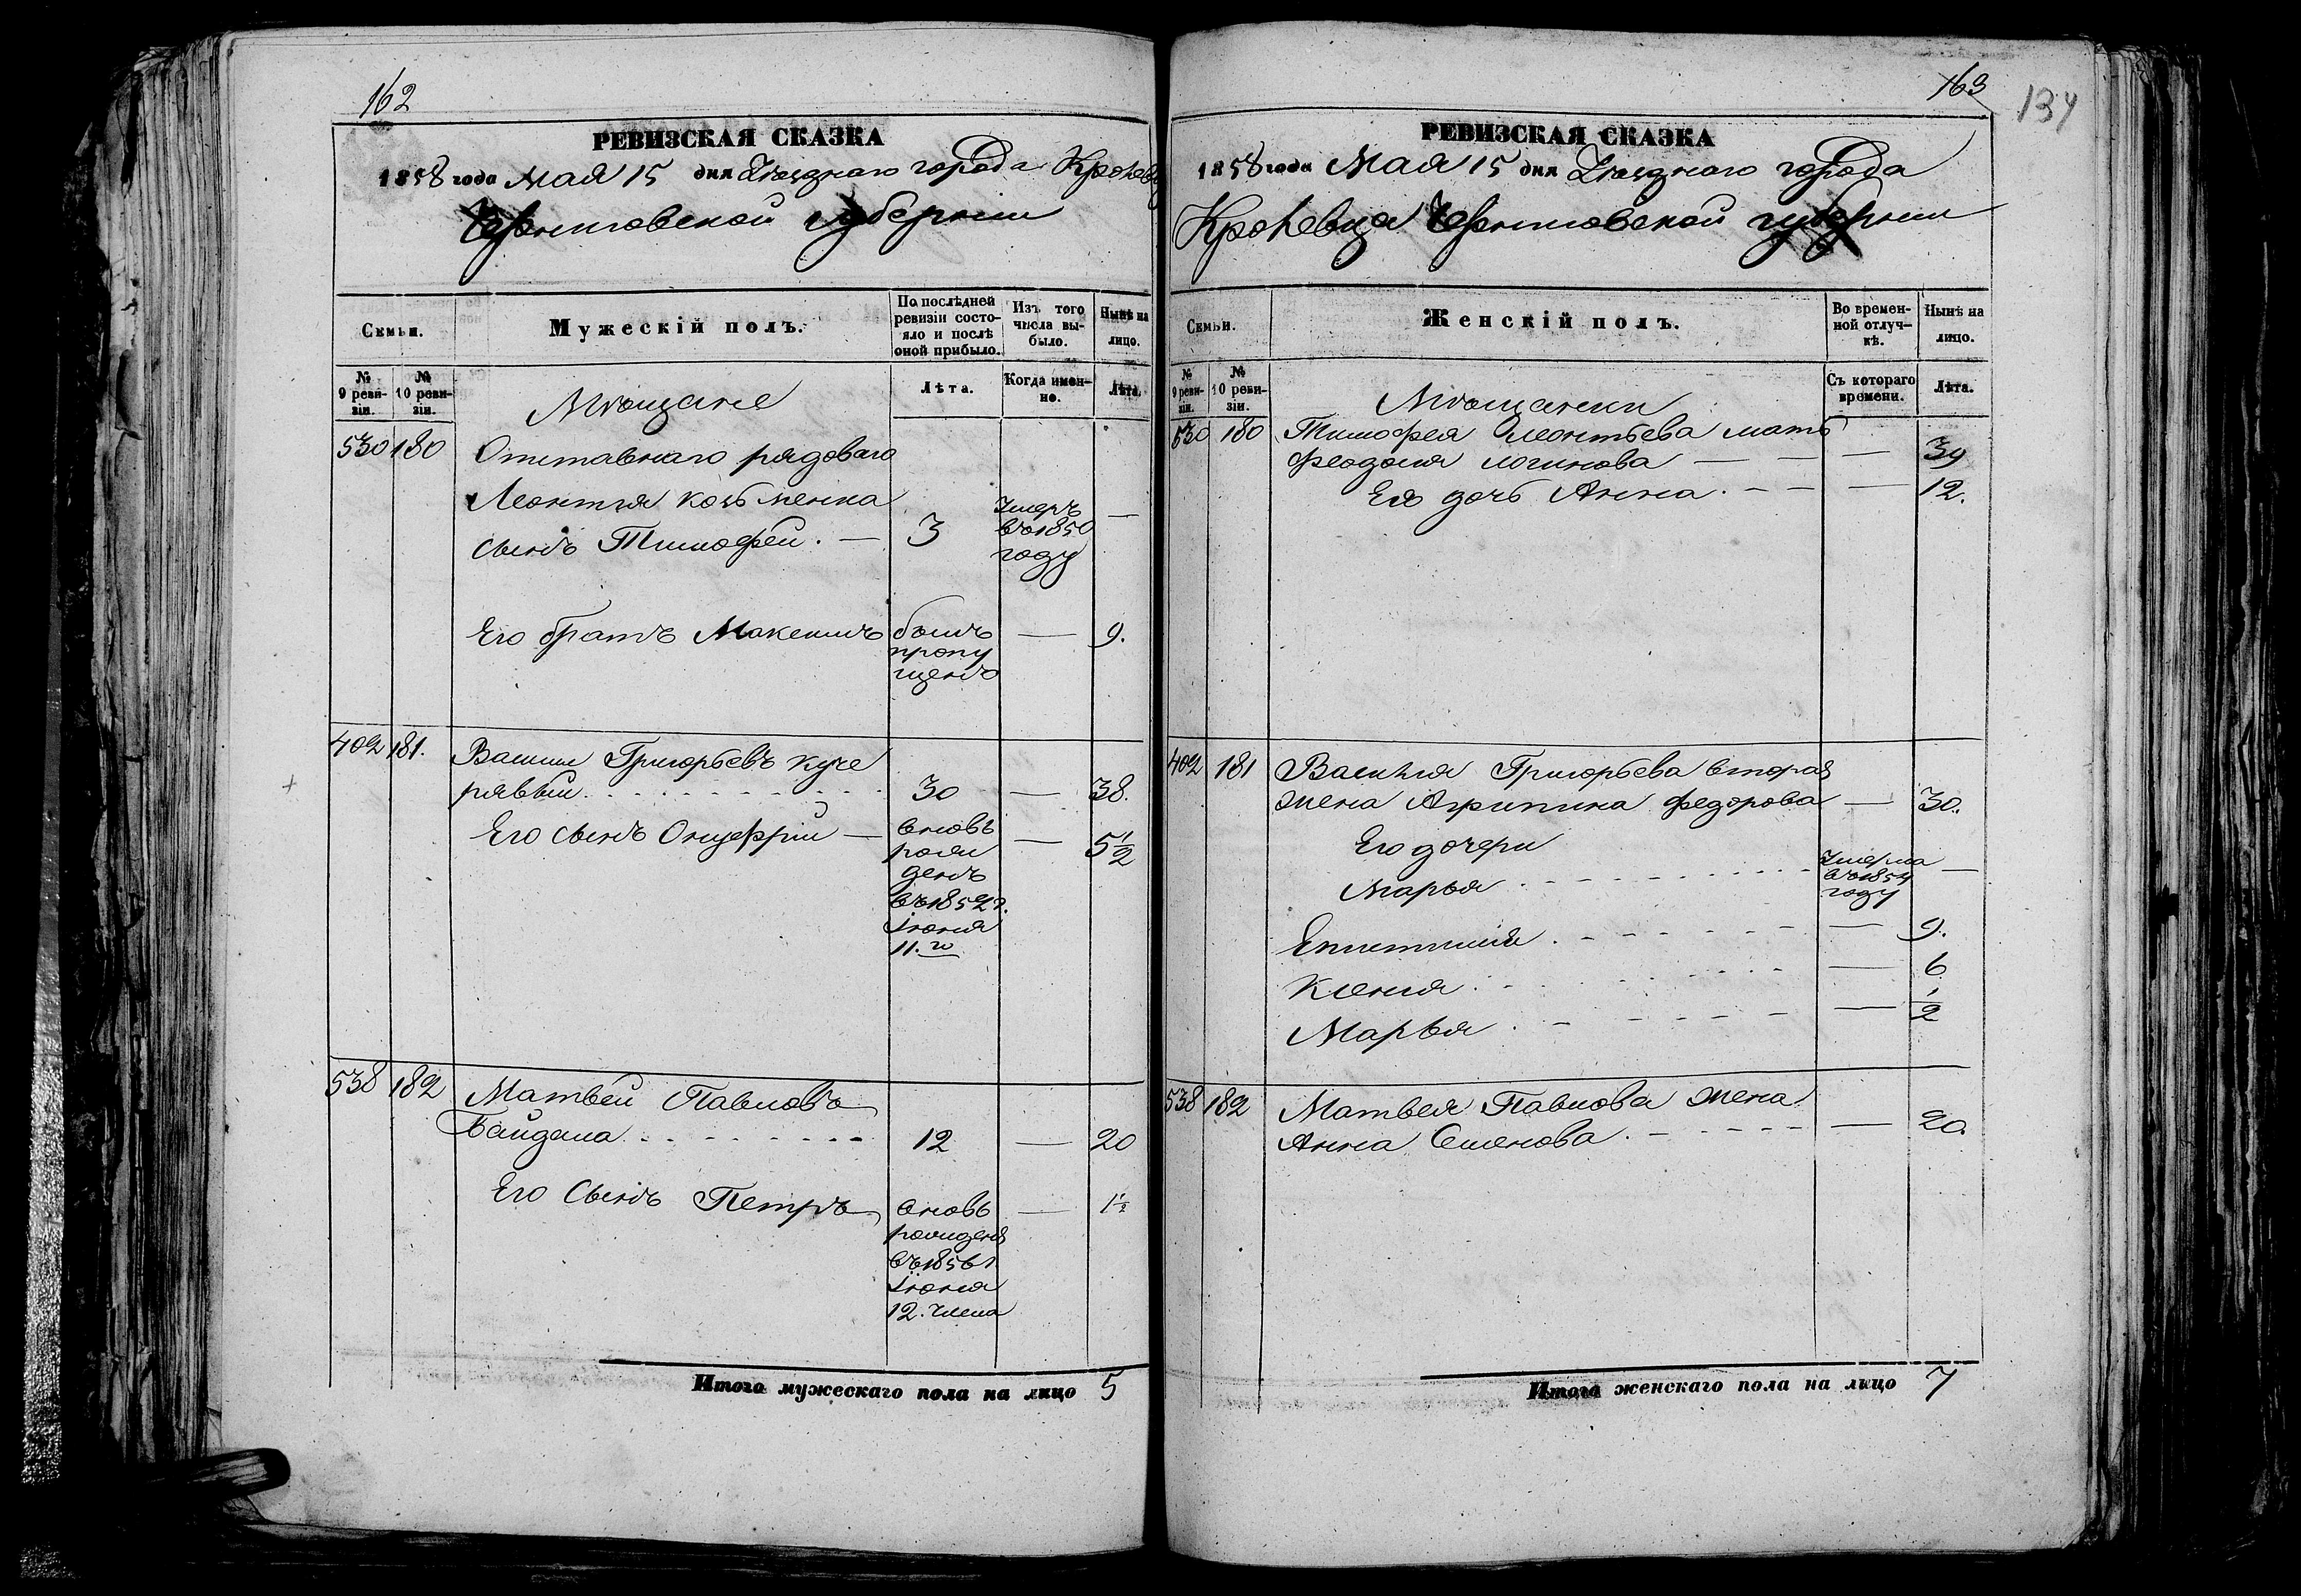 162
РЕВИЗСКАЯ СКАЗКА
1858 года Мая 15 дня Уѣзднаго города Кролевца
Черниговской губерніи
Семьи.
Мужескій полъ.
По послѣдней ревизіи состояло и послѣ оной прибыло.
Изъ того числа выбыло.
Нынѣ на лицо.
№ 9 ревизіи.
№ 10 ревизіи.
Мѣщане
Лѣта.
Когда именно.
Лѣта.
530 180 Отставнаго рядоваго
Леонтія Козьменка
сынъ Тимофей. — 3 Умеръ въ 1850 году —
Его братъ Максимъ былъ пропущенъ — 9.
402 181. Василій Григорьевъ Куче
рявый 30 — 38.
Его сынъ Онуфрій — вновь рожденъ въ 1852 г. Іюня 11.го — 5 1/2
538 182 Матвей Павловъ
Байдала 12 — 20
Его Сынъ Петръ вновь рожденъ въ 1856 г. Іюня 12. числа — 1 1/2
Итого мужескаго пола на лицо 5
163
134
РЕВИЗСКАЯ СКАЗКА
1858 года Мая 15 дня Уѣзднаго города
Кролевца Черниговской губерніи
Семьи.
Женскій полъ.
Во временной отлучкѣ.
Нынѣ на лицо.
№ 9 ревизіи.
№ 10 ревизіи.
Мѣщанки
Съ котораго времени.
Лѣта.
530 180 Тимофея Леонтьева мать
Феодосія Логинова — — — 39
Ея дочь Анна. — — — 12.
402 181 Василія Григорьева вторая
жена Агрипина Федорова — 30.
Его дочери
Марья Умерла въ 1854 году —
Епистимія — 9.
Ксенія — 6
Марья — 1/2
538 182 Матвея Павлова жена
Анна Семенова. — 20.
Итого женскаго пола на лицо 7